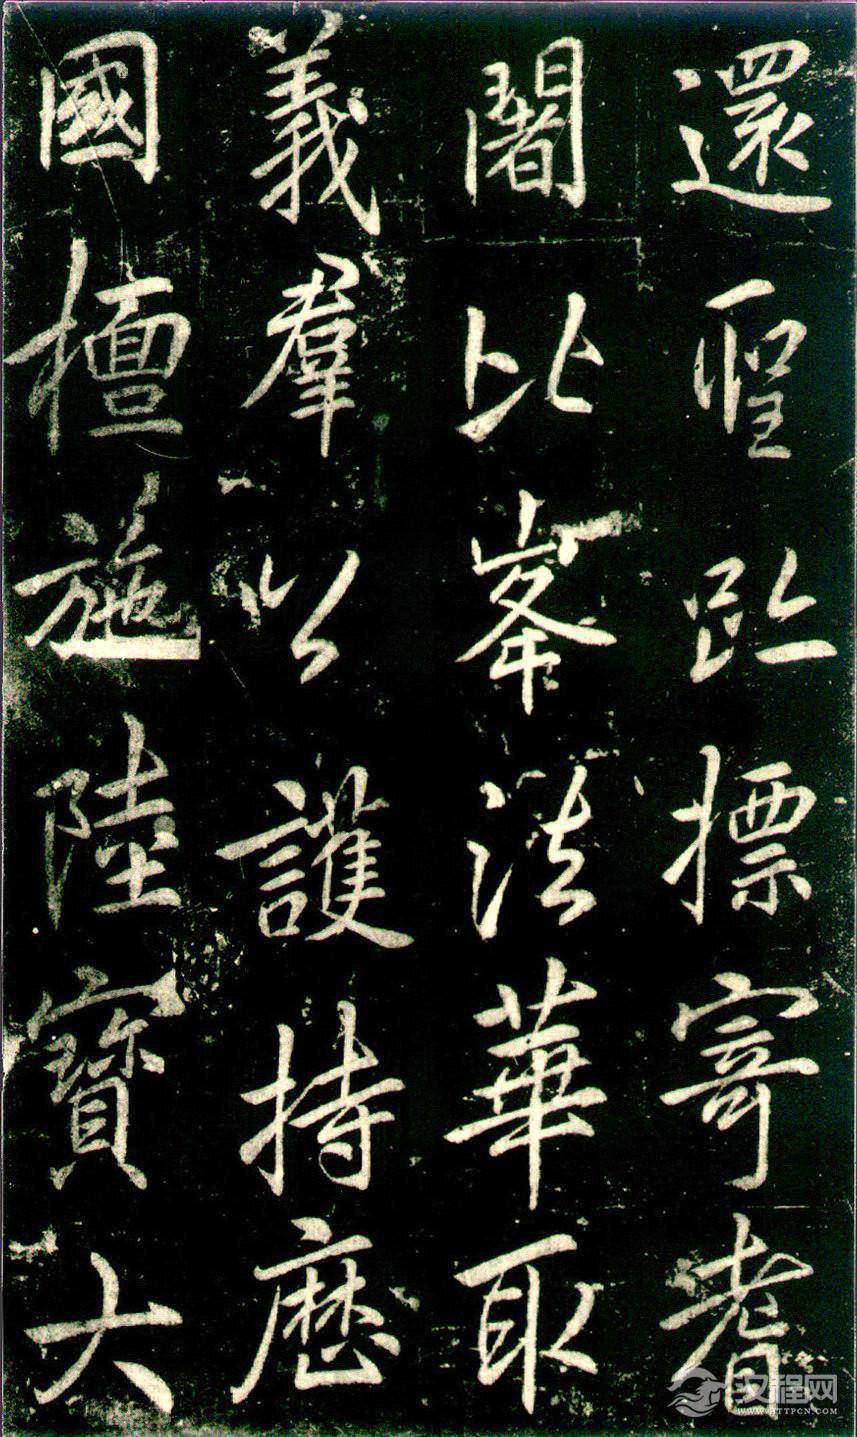 還聖趾摽寄耆
闍比峯法華取
義羣公護持歷
國檀施陸寶大
汉程网
WWW.HTTPCN.COM